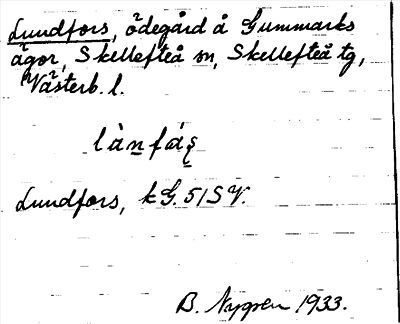 Lundfors, ödegård å Gummarks
ägor, Skellefteå sn, Skellefteå tg,
Västerb. l.
Lundfors, kG. 51SV.
B. Nygren 1933.